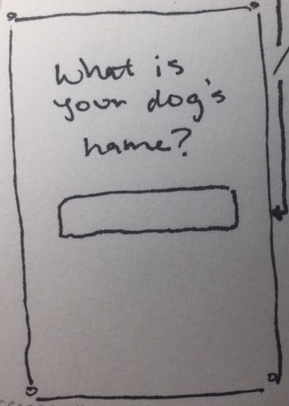 What is
your dog's
name?